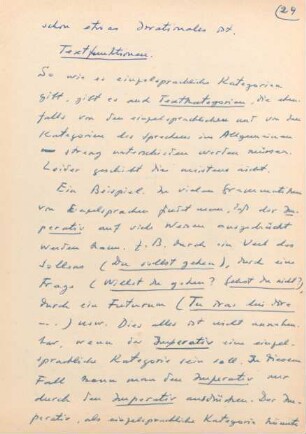 (29
schon etwas Irrationales ist.
Textfunktionen.
So wie es einzelsprachliche Kategorien
gibt, gibt es auch Textkategorien, die eben-
falls von den einzelsprachlichen und von den
Kategorien des Sprechens im Allgemeinen
streng unterschieden werden müssen.
Leider geschieht dies meistens nicht.
Ein Beispiel. In vielen Grammatiken
von Einzelsprachen findet man, daß der Im-
perativ auf viele Weisen ausgedrückt
werden kann. z.B. durch ein Verb des
Sollens (Du sollst gehen), durch eine
Frage (Willst du gehen? Gehst du nicht?),
durch ein Futurum (Tu
...) usw. Dies alles ist nicht annehm-
bar, wenn der Imperativ eine einzel-
sprachliche Kategorie sein soll. In diesem
Fall kann man den Imperativ nur
durch den Imperativ ausdrücken. Der Im-
perativ, als einzelsprachliche Kategorie könnte